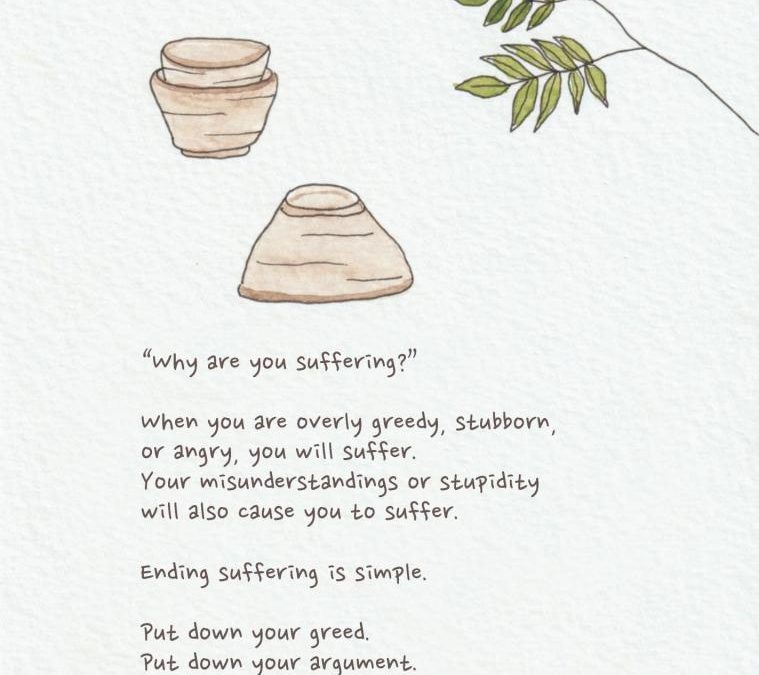 “Why are you suffering?”
When you are overly greedy, stubborn,
or angry, you will suffer.
Your misunderstandings or stupidity
will also cause you to suffer.
Ending suffering is simple.
Put down your greed.
Put down your argument.